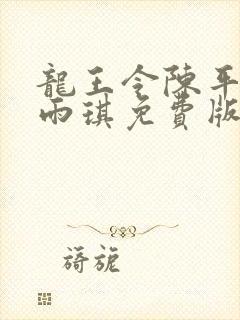 龍王令陳平
雨琪免費版
旖旎